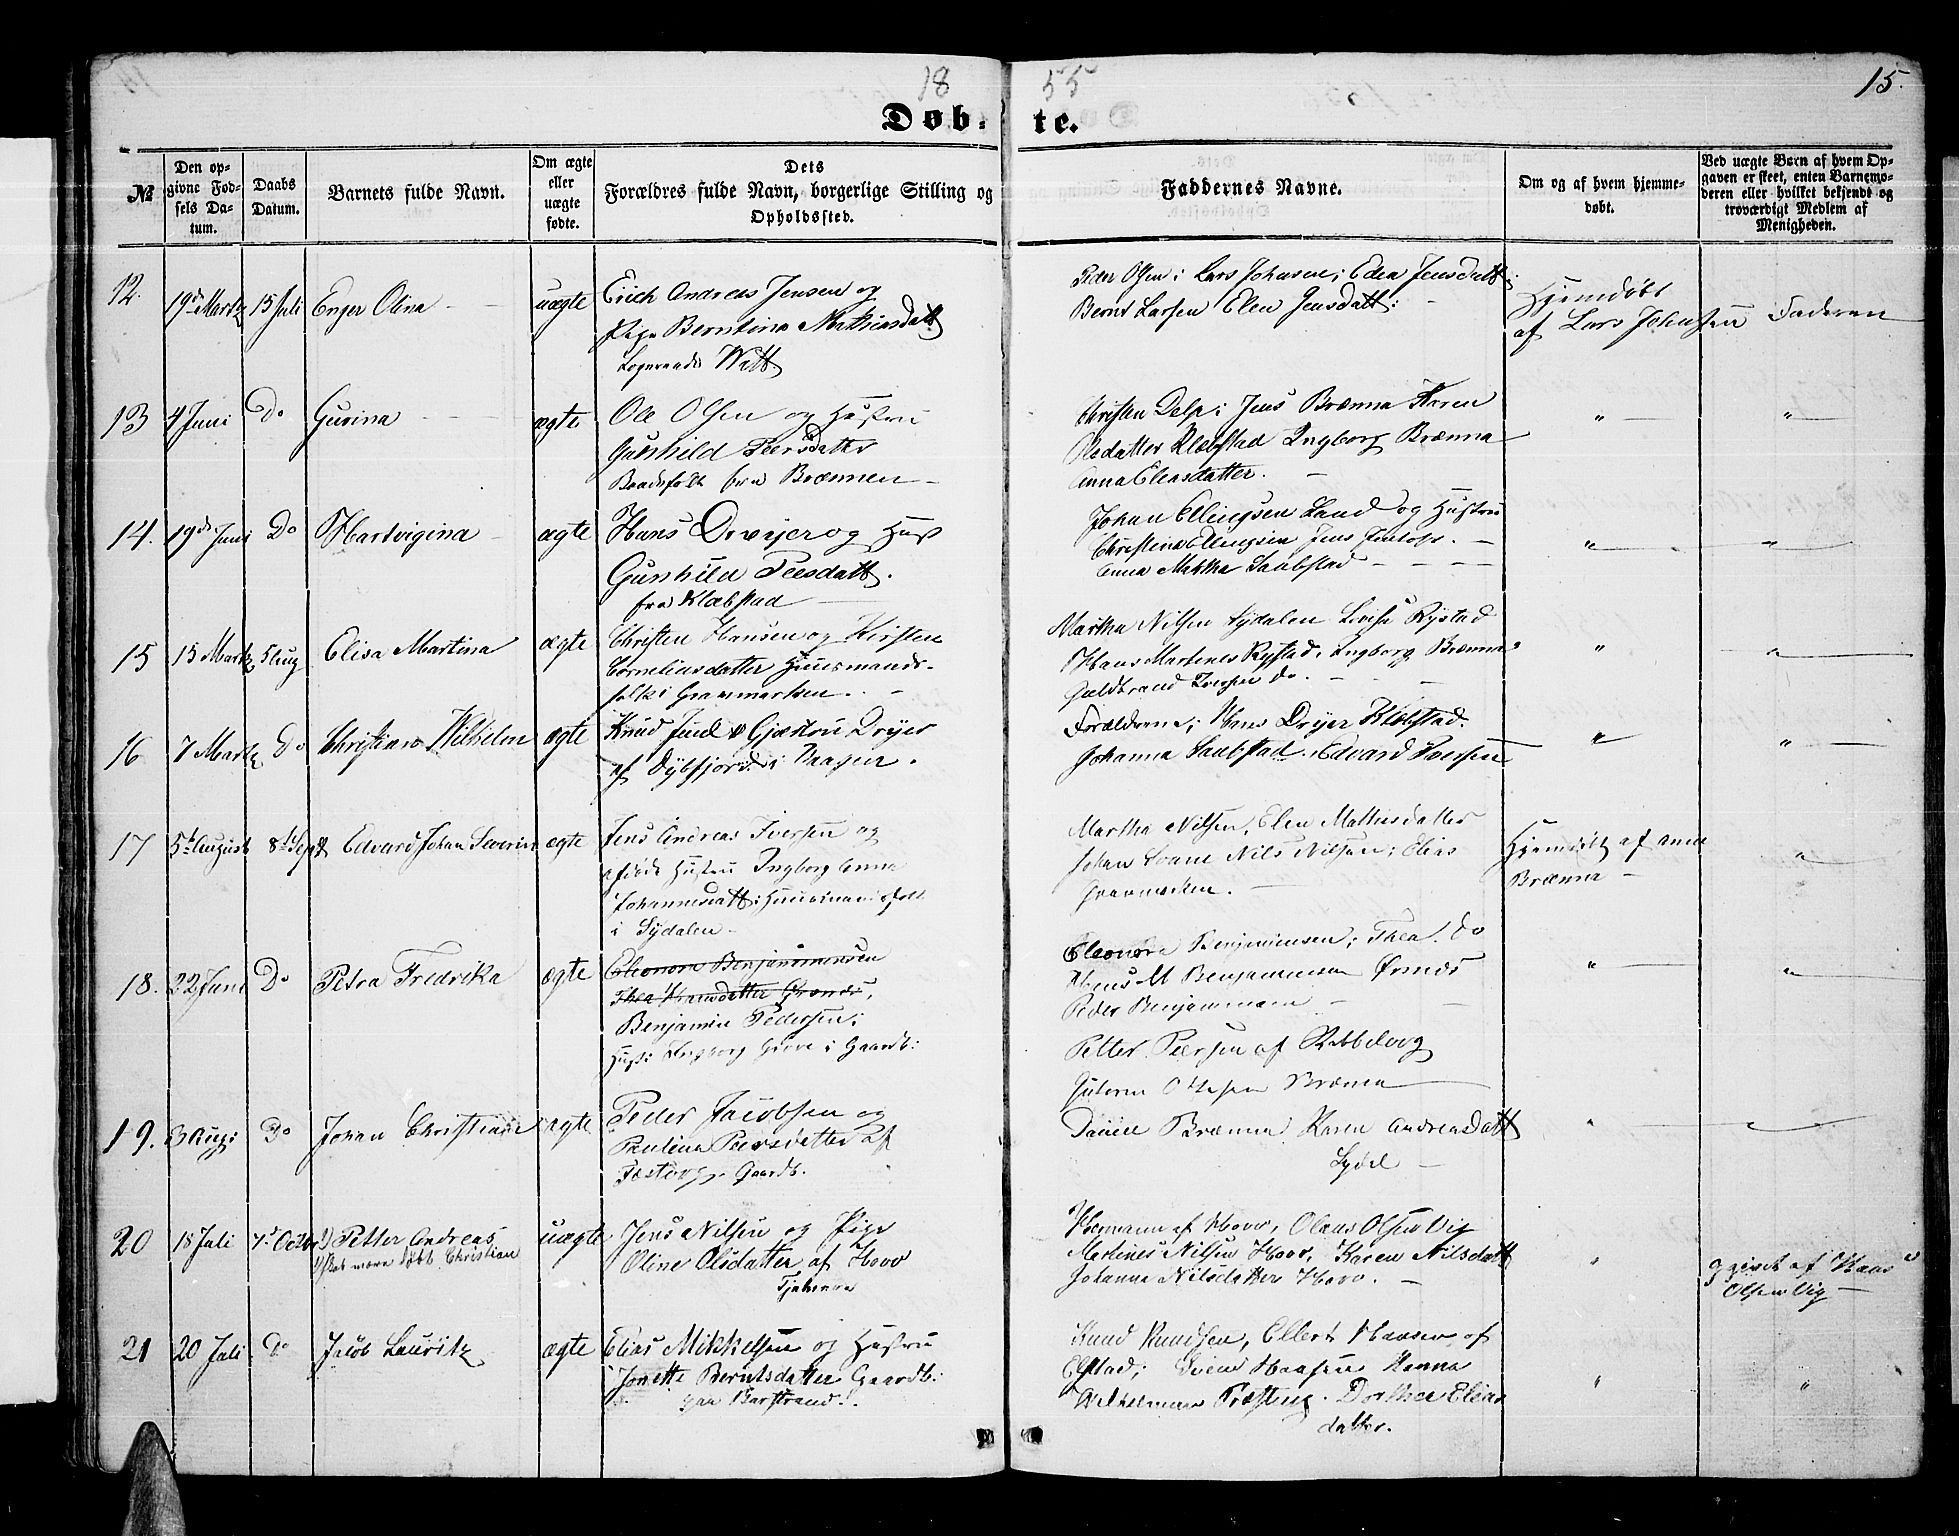 18 55
15.
Døb- te.
№
Den op-
givne Fød-
sels Da-
tum.
Daabs
Datum.
Barnets fulde Navn.
Om ægte
eller
uægte
fødte.
Dets
Forældres fulde Navn, borgerlige Stilling og
Opholdssted.
Faddernes Navne.
Om og af hvem hjemme-
døbt.
Ved uægte Børn af hvem Op-
gaven er skeet, enten Barnemo-
deren eller hvilket bekjendt og
troværdigt Medlem af
Menigheden.
12. 19de Martz 15 Juli Enger Olina uægte
Erich Andreas Jensen og
Pige Berntina Mathiasdatt
Watt
Peder Olsen; Lars Johnsen; Edea Jensdatt:
Bernt Larsen Elen Jensdatt:
Hjemdøbt
af Lars Johnsen
Faderen
13 4 Juni Do Gurina ægte
Ole Olsen og Hustru
Gunhild Peersdatter
Baadsfolk fra Brænnen
Christen Delp; Jens Brænna Karen
Olsdatter Klæbstad Ingborg Brænna
Anna Eleasdatter.
" "
14. 19de Juni Do Hartvigina ægte
Hans Dreyer og Hust
Gunhild Peesdatt.
fra Klæbstad
Johan Ellingsen Sand og Hustru
Christina Ellingsen Jens
Anna Martha Saubstad
" "
15 15 Martz 5 Aug Elisa Martina ægte
Christen Hansen og Kirsten
Corneliasdatter Huusmands-
folk i Gravmarken.
Martha Nilsen Sydalen Lovise Rystad
Hans Martenes Rystad, Ingborg Brænna
Guldbrand Iversen do.
" "
16 7 Martz Do Christian Wilhelm ægte
Knud Juul & Gjærtru Dreyer
af Dybfjord i Vaagen.
Forældrene; Hans Dreyer Klæbstad.
Johanna Saubstad. Edvard Iversen
" "
17 5te August 8de Sept Edvard Johan Severin ægte
Jens Andreas Iversen og
Hustru Ingborg Anna
Johannesdatt: Huusmandsfolk
i Sydalen
Martha Nilsen, Elen Mathisdatter
Johan Nils Nilsen; Elias
Gravmarken.
Hjemdøbt af Anne
Brænna
"
18. 22 Juni Do Petra Fredrika ægte
Eleonora Benjaminsen
Thea Hansdatter
Benjamin Pedersen;
Hust: Ingborg i Gaardb:
Eleonora Benjaminsen; Thea. do
Hans M Benjaminsen Ørsnes
Peder Benjaminsen
Petter Peersen af
Guterm Ottesen Brænna
" "
19. 3 Aug: Do Johan Christian ægte
Peder Jacobsen og
Paulina Peersdatter af
Festvog. Gaardb.
Daniel Brænna Karen Andreasdatt
Sydal
" "
20 18 Juli 7de Octbr 1) Petter Andreas
1) skal være døbt Christian
uægte
Jens Nilsen og Pige
Oline Olsdatter af Hovv
Hermann af Hovv, Olaus Olsen Vig
Martines Nilsen Hovv, Karen Nilsdatt
Johanna Nilsdatter Hovv.
"
givet af Hans
Olsen Vig
21 20 Juli Do Jacob Lauritz ægte
Elias Mikkelsen og Hustru
Jonette Berntsdatter Gaardb:
paa Barstrand.
Knud Knudsen, Ellert Hansen af
Ølstad; Hansen Hanna
Wilhelmine Præsteng. Dorthea Elias
datter.
" "